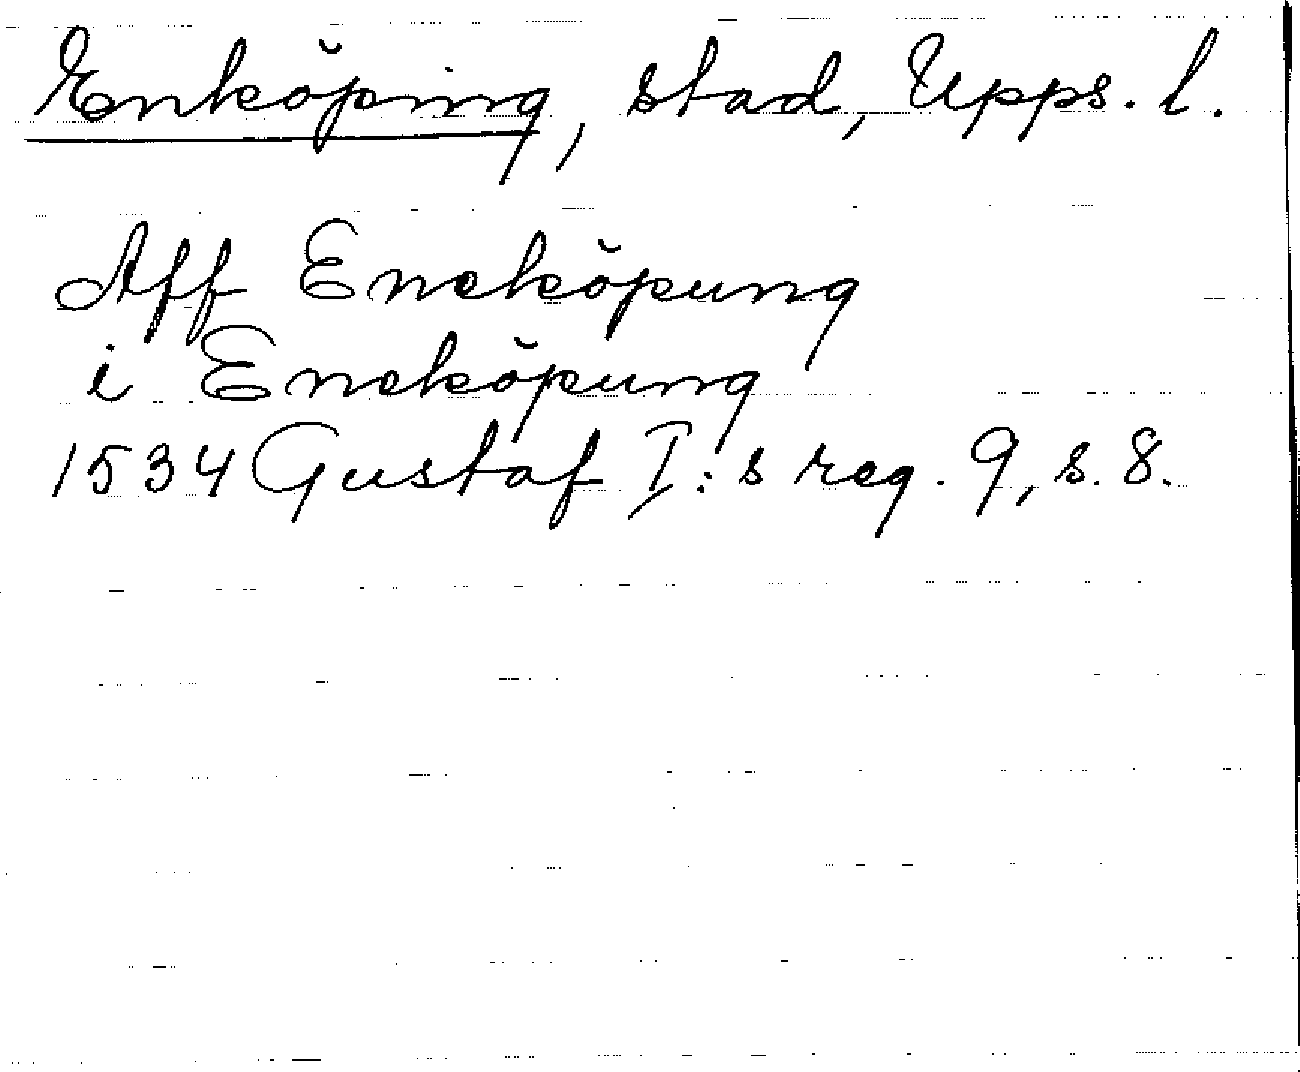 Enköping, stad, Upps. l.
Aff Eneköpung
i Eneköpung
1534 Gustaf I:s reg. 9, s. 8.